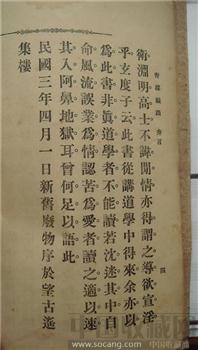 香艷叢話 弁言
四
衛淵明高士不諱閒情亦得謂之導欲宣淫
乎玄度子云此書從講道學中得來余亦以
爲此書非眞道學者不能讀若沈迷其中自
命風流誤業爲情認苦爲愛者讀之適以速
其入阿鼻地獄耳曾何足以語此
民國三年四月一日新舊廢物序於望古遙
集樓
中国收藏网
www.socang.com